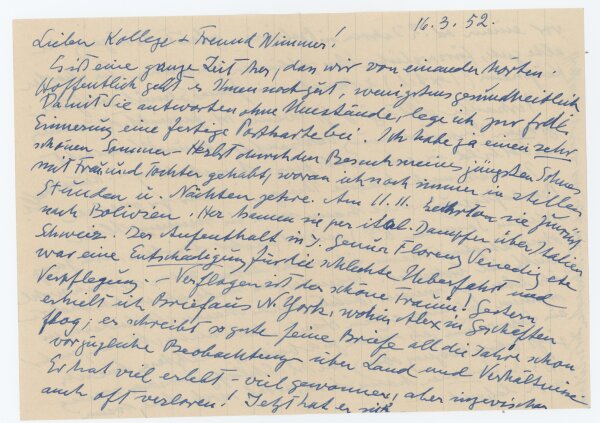 16.3.52.
Lieber Kollege + Freund Wimmer!
Es ist eine ganze Zeit her, dass wir von einander hörten.
Hoffentlich geht es Ihnen noch gut, wenigstens gesundheitlich
Damit Sie antworten ohne Umstände, lege ich zur frdl.
Erinnerung eine fertige Postkarte bei. Ich habe ja einen sehr
schönen Sommer-Herbst durch den Besuch meines jüngsten Sohnes
mit Frau und Tochter gehabt, woran ich noch immer in stillen
Stunden u. Nächten zehre. Am 11.11. kehrten sie zurück
nach Bolivien. Her kamen sie per ital. Dampfer über Italien
Schweiz. Der Aufenthalt in I. Genua Florenz Venedig etc
war eine Entschädigung für die schlechte Überfahrt und
Verpflegung. — Verflogen ist der schöne Traum! Gestern
erhielt ich Brief aus N. York, wohin Alex in Geschäften
flog; er schreibt so gute feine Briefe all die Jahre schon
vorzügliche Beobachtung über Land und Verhältnisse
Er hat viel erlebt - viel gewonnen, aber inzwischen
auch oft verloren! Jetzt hat er sich